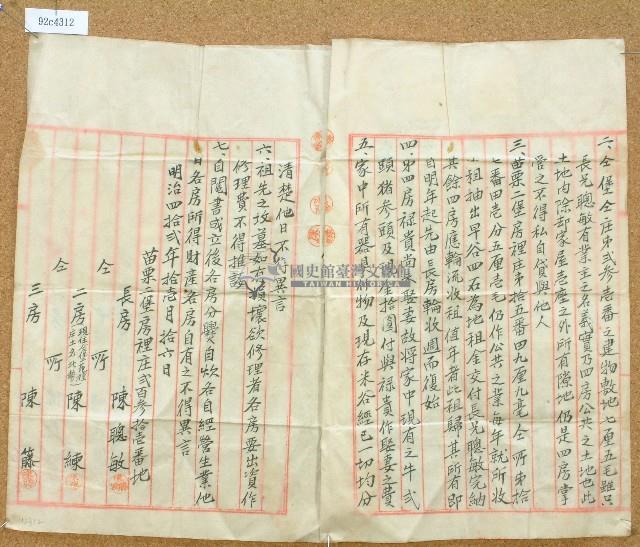 92c4312
二、仝堡仝庄第弍参壱番之建物敷地七厘五毛雖只
長兄聰敏有業主之名義實乃四房公共之土地也此
土地內除却家屋壱座之外所有隙地仍是四房掌
管之不得私自貸與他人
三、苗栗二堡房裡庄第拾五番四九厘九毫仝所第拾
七番田壱分五厘壱毛仍作公共之業每年就所收
小租抽出早谷四石為地租金交付長兄聰敏完納
其餘四房應輪流收租值年者此租歸其所有即
自明年起先由長房輪收週而復始
四、第四房祿貴尚未娶妻故將家中現有之牛弍
頭猪参頭及 拾圓付與祿貴作娶妻之費
五、家中所有器具 物及現在米谷經已一切均分
清楚他日不得異言
六、祖先之坟墓如有損壞欲修理者各房要出資作
修理費不得推諉
七、自鬮書成立後各房分爨自炊各自經營生業他
日各房所得財產各房自有之不得異言
明治四拾弍年拾壱月拾六日
苗栗二堡房裡庄弍百参拾壱番地
長房 陳聰敏
仝所
二房 陳練
仝所
三房 陳籐
國史館臺灣文獻館
TAIWAN HISTORICA